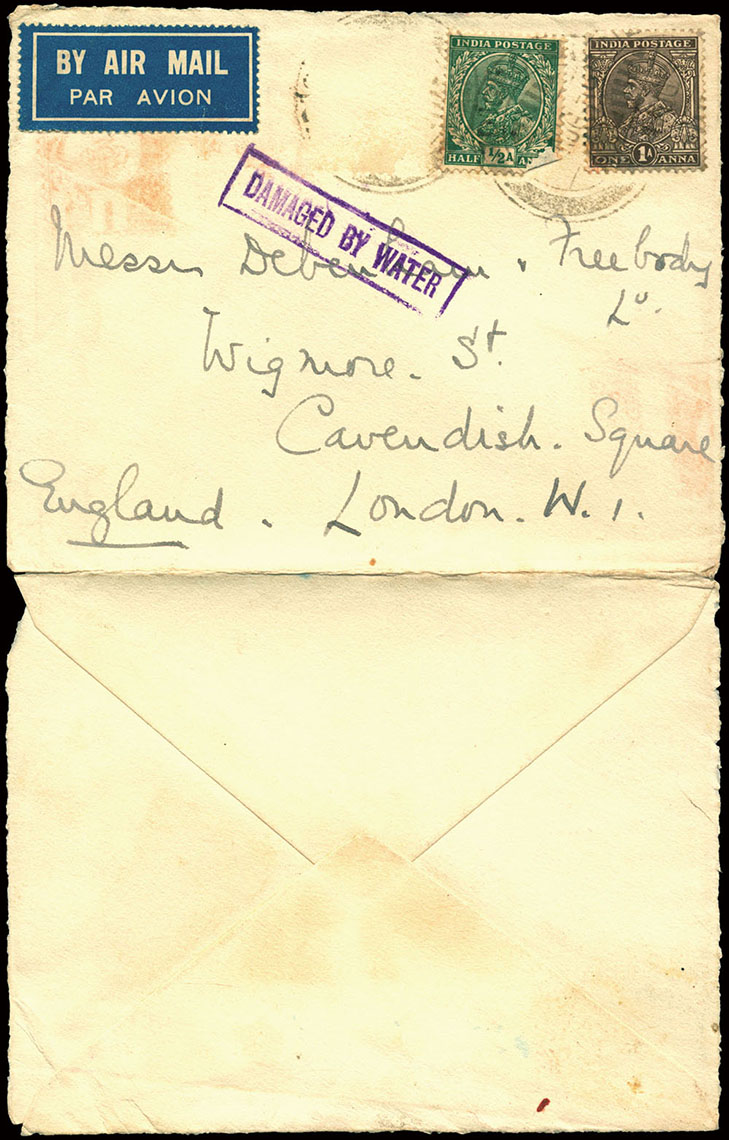 BY AIR MAIL
PAR AVION
INDIA POSTAGE
HALF ½A AN
INDIA POSTAGE
ONE 1A ANNA
DAMAGED BY WATER
Messrs Debenham & Freebody
Ld.
Wigmore. St.
Cavendish. Square
England. London. W.1.